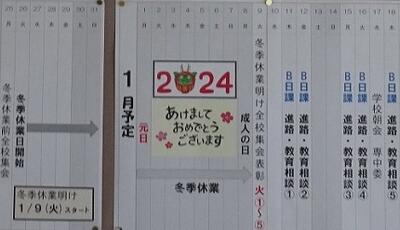 25
26
27
28
29
30
31
冬季休業前全校集会
冬季休業日開始
冬季休業明け
1/9(火)スタート
1月予定
1
2
3
4
5
6
7
8
9
10
11
12
13
14
15
16
17
18
元日
2024
あけまして
おめでとう
ございます
冬季休業
成人の日
冬季休業明け全校集会表彰 火①~⑤
B日課 進路・教育相談①
B日課 進路・教育相談②
B日課 進路・教育相談③
B日課 進路・教育相談④
学校朝会 専中委
B日課 進路・教育相談⑤